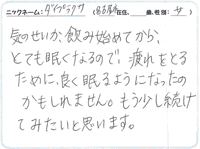 ニックネーム: ダイプラクサ (名古屋市在住、 歳、性別: 女 )
気のせいか飲み始めてから、
とても眠くなるので、疲れをとる
ために、良く眠るようになったの
かもしれません。もう少し続け
てみたいと思います。